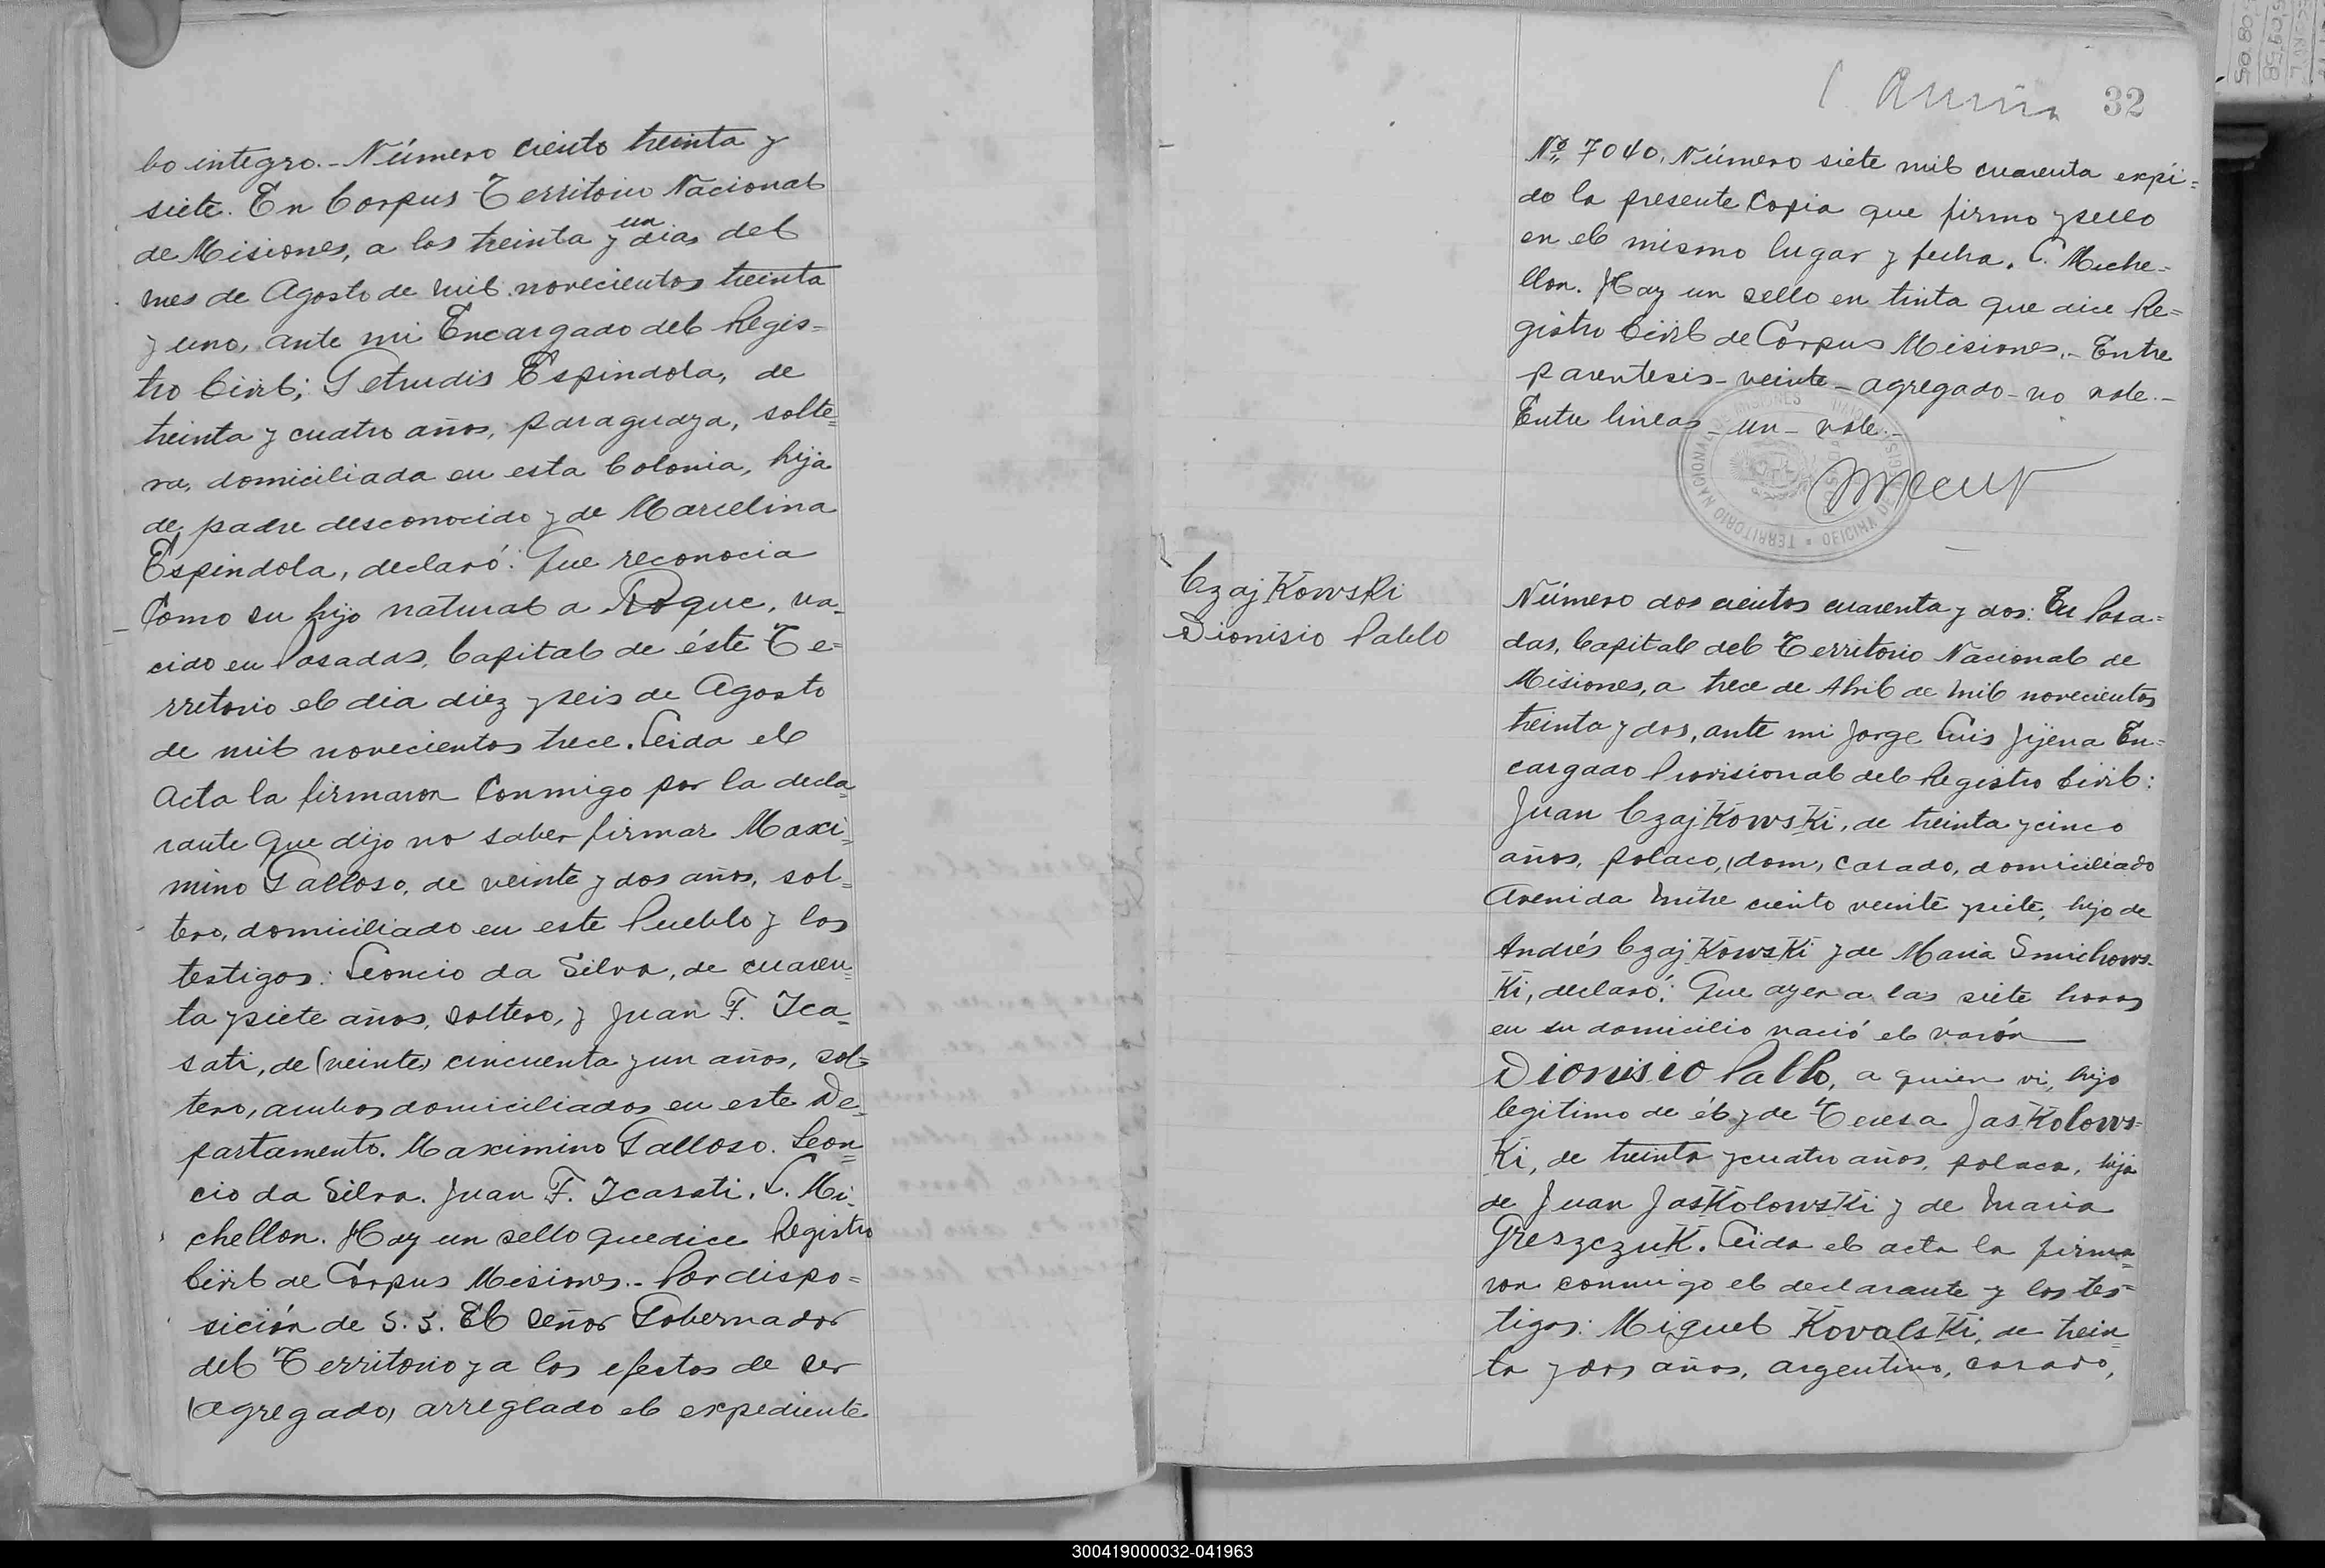 bo integro.- Número ciento treinta y
siete. En Corpus Territorio Nacional
de Misiones, a los treinta y un dias del
mes de Agosto de mil novecientos treinta
y uno, ante mi Encargado del Regis=
tro Civil; Getrudis Espindola, de
treinta y cuatro años, paraguaya, solte=
ra, domiciliada en esta Colonia, hija
de padre desconocido y de Marcelina
Espindola, declaró: Que reconocia
Como su hijo natural a Roque, na-
cido en Posadas, Capital de éste Te=
rritorio el dia diez y seis de Agosto
de mil novecientos trece. Leida el
Acta la firmaron Conmigo por la decla=
rante que dijo no saber firmar Maxi=
mino Galloso, de veinte y dos años, sol=
tero, domiciliado en este Pueblo y los
testigos: Leoncio da Silva, de cuaren=
ta y siete años, soltero, y Juan F. Ica=
sati, de (veinte) cincuenta y un años, sol=
tero, ambos domiciliados en este De=
partamento. Maximino Galloso. Leon=
cio da Silva. Juan F. Icasati. C. Mi=
chellon. Hay un sello que dice Registro
Civil de Corpus Misiones.- Por dispo=
sición de S.S. El Señor Gobernador
del Territorio y a los efectos de ser
(agregado) arreglado el expediente
32
Nº 7040. Número siete mil cuarenta expi=
do la presente Copia que firmo y sello
en el mismo lugar y fecha. C. Miche=
llon. Hay un sello en tinta que dice Re=
gistro Civil de Corpus Misiones.- Entre
parentesis - veinte - agregado - no vale.-
Entre lineas - un - vale.-
TERRITORIO NACIONAL DE MISIONES
Czajkowski
Dionisio Pablo
Número dos cientos cuarenta y dos: En Posa=
das, Capital del Territorio Nacional de
Misiones, a trece de Abril de mil novecientos
treinta y dos, ante mi Jorge Luis Jijena En=
cargado Provisional del Registro Civil:
Juan Czajkowski, de treinta y cinco
años, polaco, (dom) casado, domiciliado
Avenida Mitre ciento veinte y siete, hijo de
Andrés Czajkowski y de Maria Smichows-
ki, declaró: Que ayer a las siete horas
en su domicilio nació el varón
Dionisio Pablo, a quien vi, hijo
legitimo de él y de Teresa Jaskolows=
ki, de treinta y cuatro años, polaca, hija
de Juan Jaskolowski y de Maria
Greszczuk. Leida el acta la firma=
ron conmigo el declarante y los tes=
tigos: Miguel Kovalski, de trein=
ta y dos años, argentino, casado,
300419000032-041963